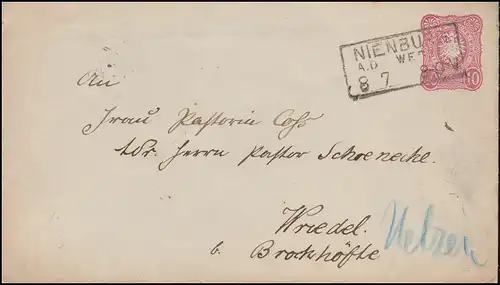 NIENBU
A.D. WE
8 7
10
An
Frau Pastorin Cohs
Adr. Herrn Pastor Schoenecke.
Wriedel.
b. Brockhöfte
Uelzen